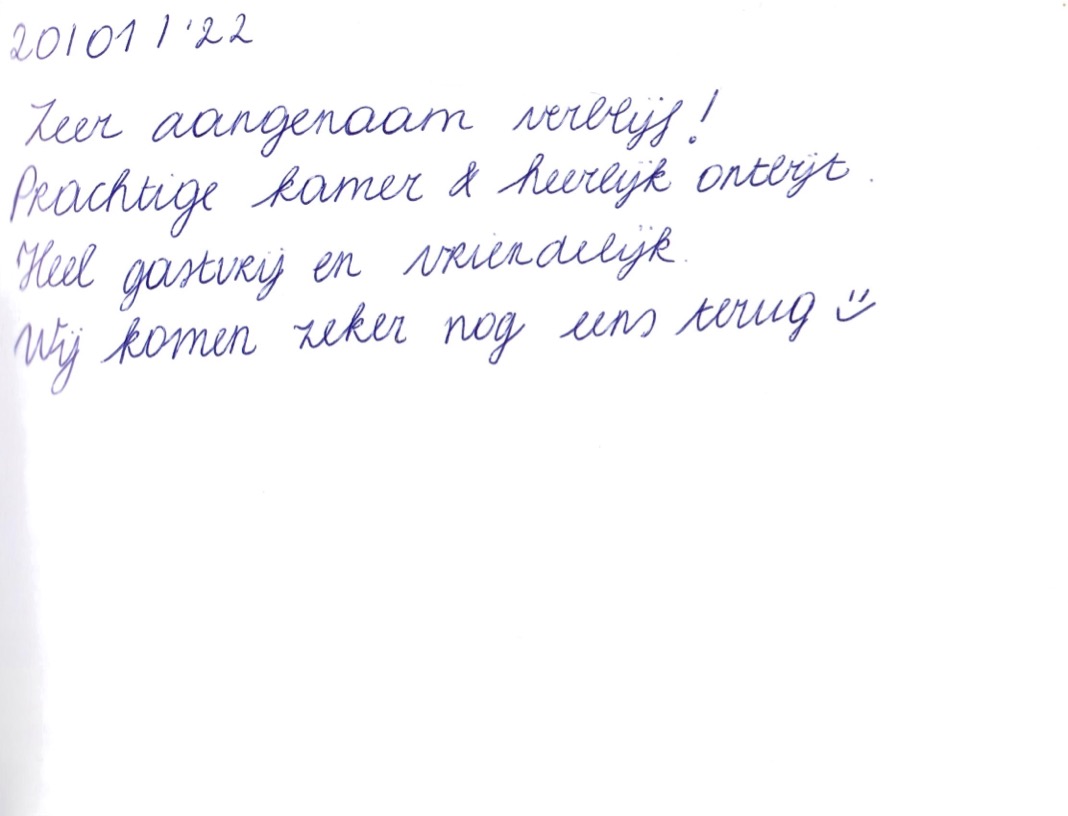 20/01/'22
Zeer aangenaam verblijf!
Prachtige kamer & heerlijk ontbijt.
Heel gastvrij en vriendelijk.
Wij komen zeker nog eens terug :)